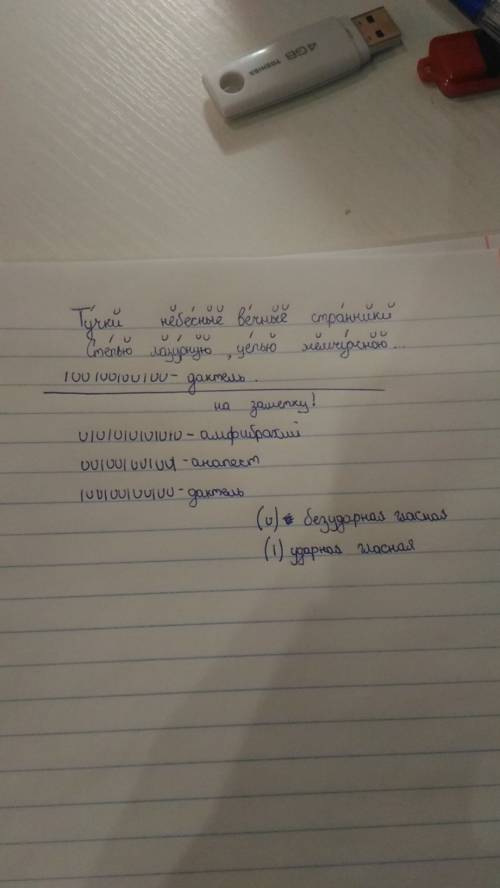 4GB TOSHIBA
Тучки небесные вечные странники
Степью лазурную, цепью жемчужной...
100100100100 - дактель.
на заметку!
0101010101010 - амфибрахий
001001001001 - анапест
100100100100 - дактель
(0) безударная гласная
(1) ударная гласная